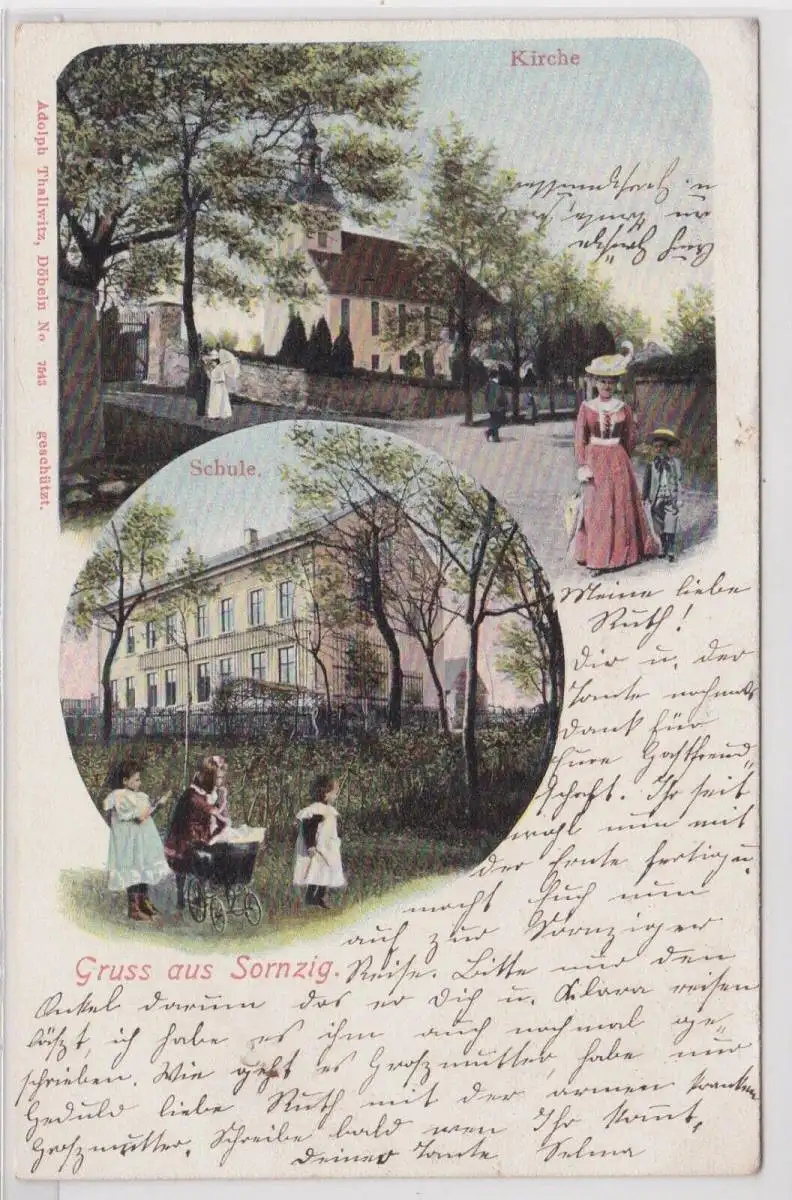 Kirche
Adolph Thallwitz, Döbeln No 7543 geschützt.
Schule.
Gruss aus Sornzig.
Meine liebe
Ruth!
Dir u. der
Tante nochmals
Dank für
Eure Gastfreund„
schaft. Ihr seit
wohl nun mit
der Ernte fertig u.
macht Euch nun
auf zur Sornziger
Reise. Bitte nur den
Onkel darum das er Dich u. Klara reisen
läszt, ich habe es ihm auch nochmal ge„
schrieben. Wie geht es Groszmutter, habe nur
Geduld liebe Ruth mit der armen kranken
Groszmutter. Schreibe bald wen Ihr kommt,
Deiner Tante Selma